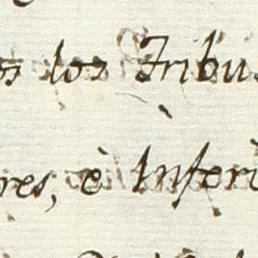 os los Tribu
res, è Inferi